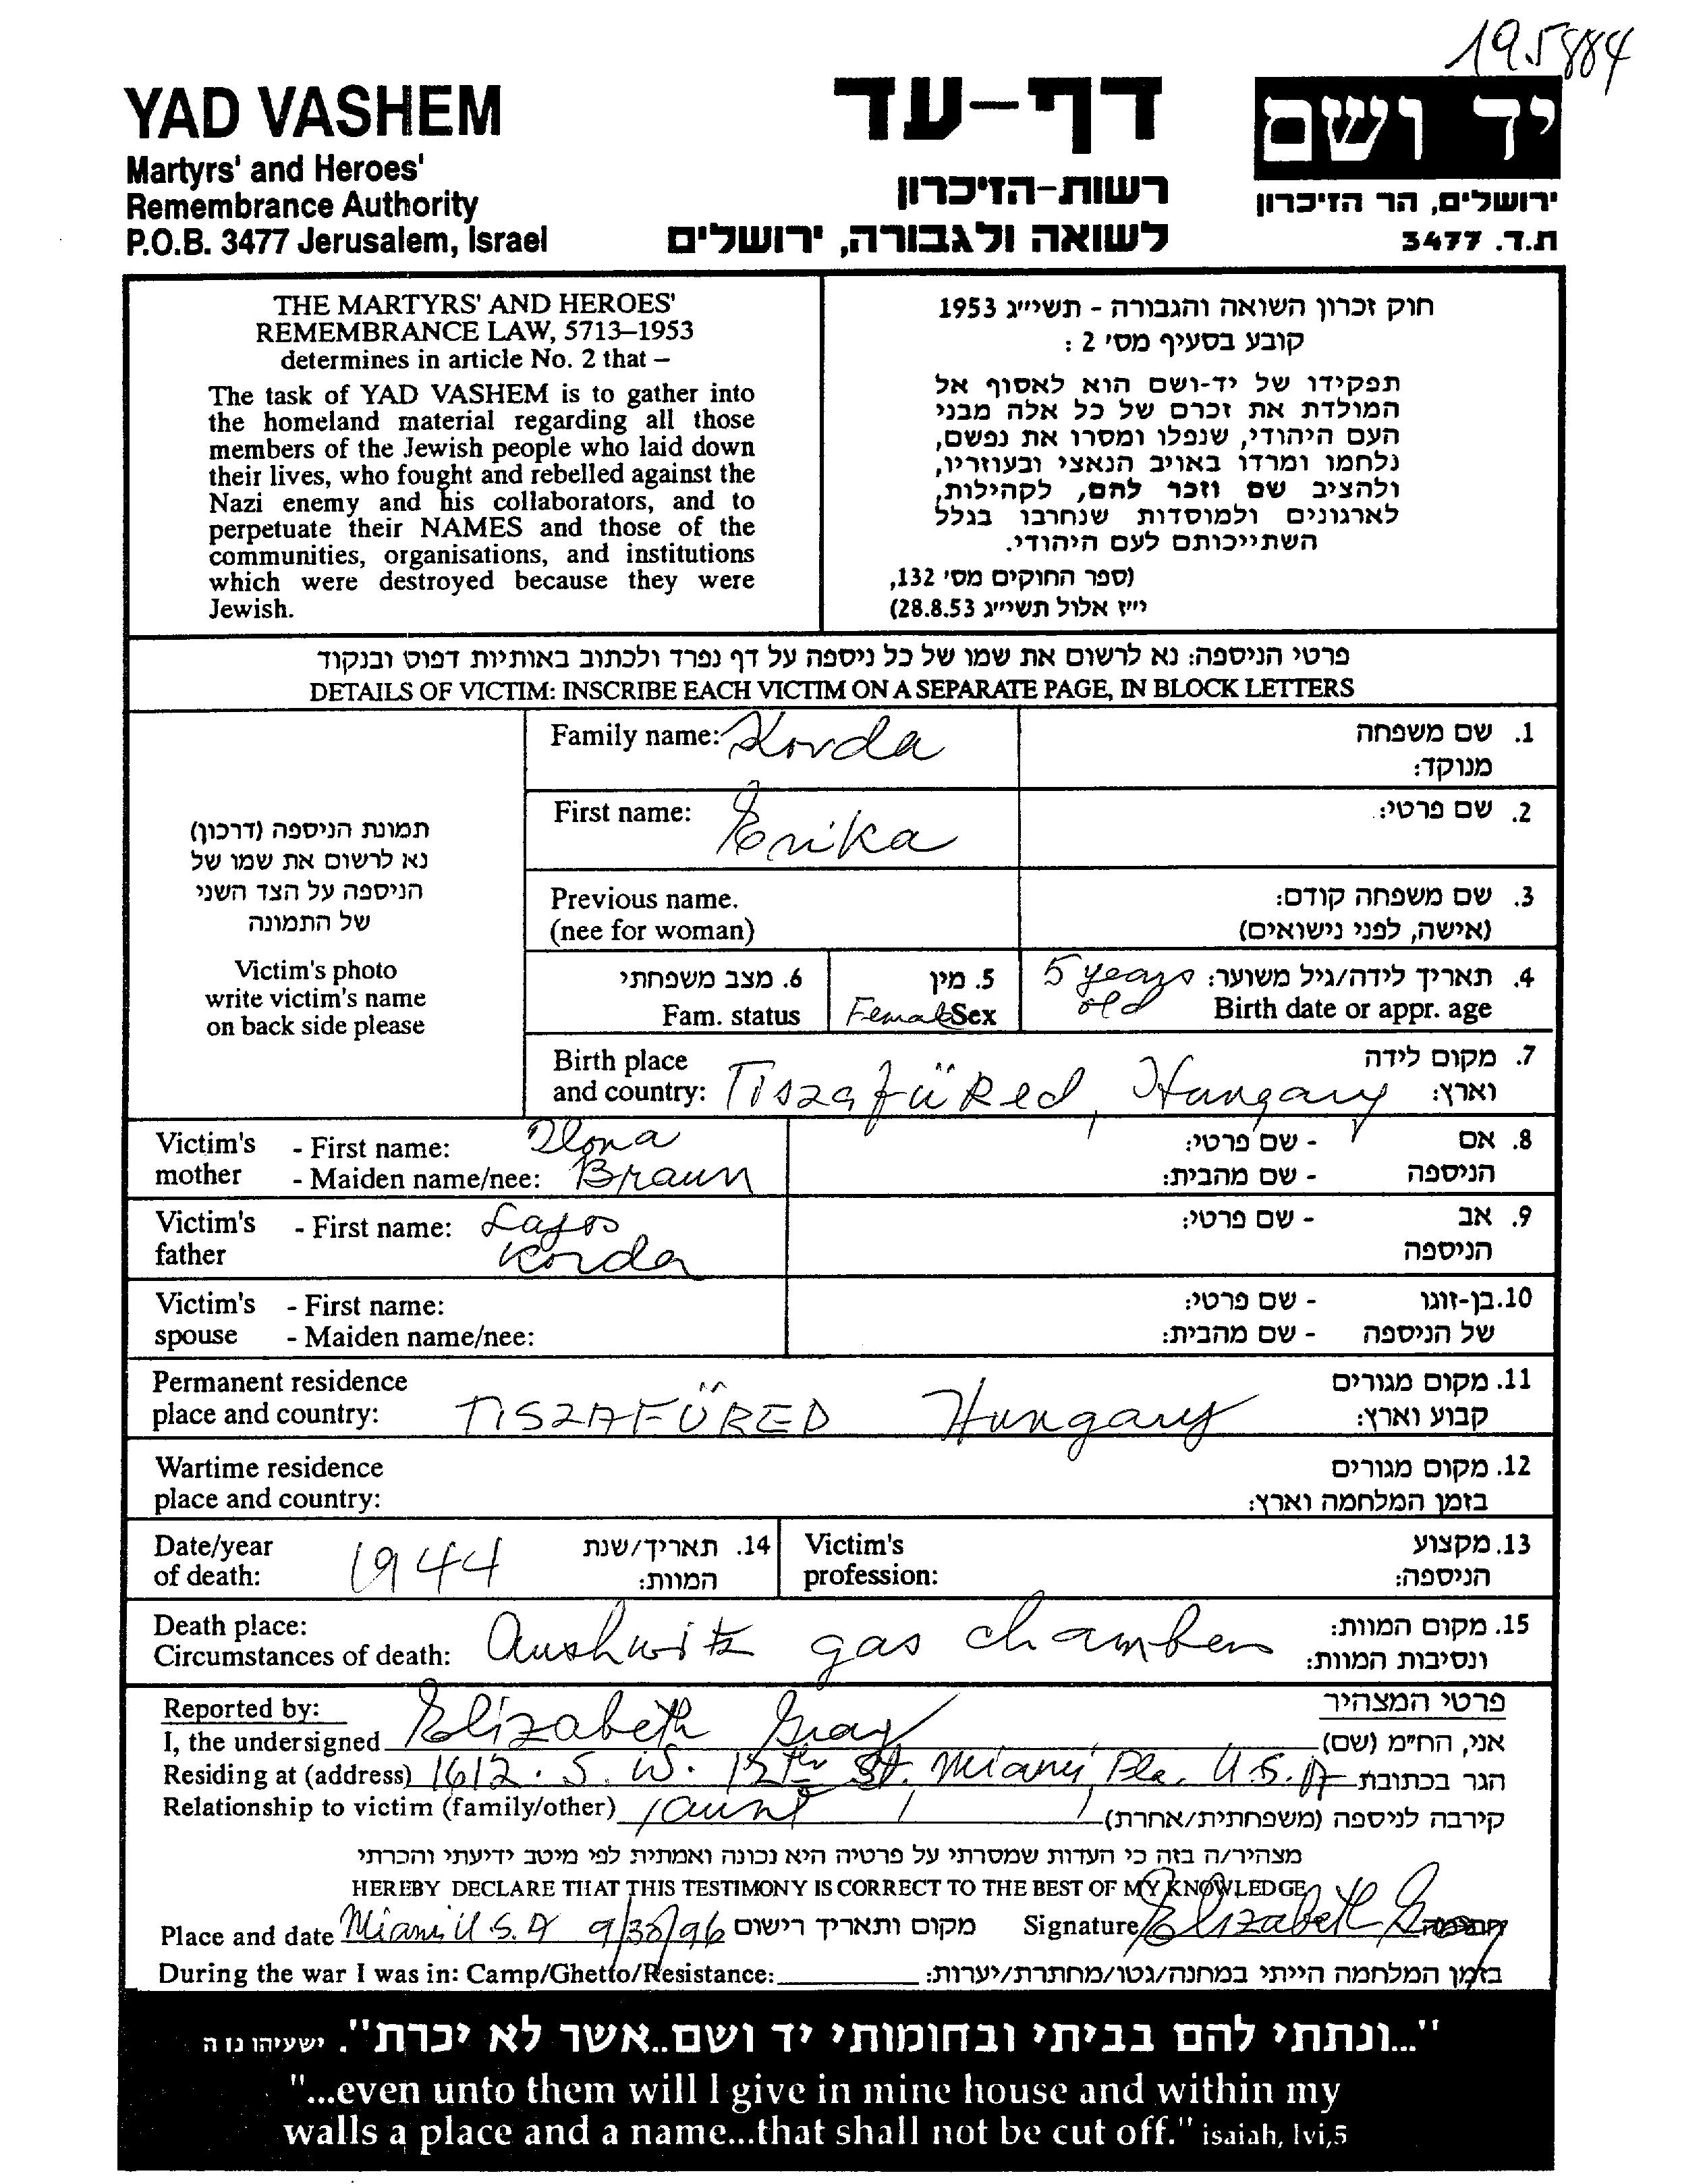 195884
YAD VASHEM
Martyrs' and Heroes'
Remembrance Authority
P.O.B. 3477 Jerusalem, Israel
דף-עד
רשות-הזיכרון
לשואה ולגבורה, ירושלים
יד ושם
ירושלים, הר הזיכרון
ת.ד. 3477
THE MARTYRS' AND HEROES'
REMEMBRANCE LAW, 5713–1953
determines in article No. 2 that –
The task of YAD VASHEM is to gather into
the homeland material regarding all those
members of the Jewish people who laid down
their lives, who fought and rebelled against the
Nazi enemy and his collaborators, and to
perpetuate their NAMES and those of the
communities, organisations, and institutions
which were destroyed because they were
Jewish.
חוק זכרון השואה והגבורה - תשי״ג 1953
קובע בסעיף מס' 2 :
תפקידו של יד-ושם הוא לאסוף אל
המולדת את זכרם של כל אלה מבני
העם היהודי, שנפלו ומסרו את נפשם,
נלחמו ומרדו באויב הנאצי ובעוזריו,
ולהציב שם וזכר להם, לקהילות,
לארגונים ולמוסדות שנחרבו בגלל
השתייכותם לעם היהודי.
(ספר החוקים מס' 132,
י״ז אלול תשי״ג 28.8.53)
פרטי הניספה: נא לרשום את שמו של כל ניספה על דף נפרד ולכתוב באותיות דפוס ובנקוד
DETAILS OF VICTIM: INSCRIBE EACH VICTIM ON A SEPARATE PAGE, IN BLOCK LETTERS
תמונת הניספה (דרכון)
נא לרשום את שמו של
הניספה על הצד השני
של התמונה
Victim's photo
write victim's name
on back side please
Family name: Korda 1. שם משפחה
מנוקד:
First name: Erika 2. שם פרטי:
Previous name. 3. שם משפחה קודם:
(nee for woman) (אישה, לפני נישואים)
6. מצב משפחתי 5. מין 5 years 4. תאריך לידה/גיל משוער:
Fam. status Female Sex old Birth date or appr. age
Birth place 7. מקום לידה
and country: Tiszafüred, Hungary וארץ:
Victim's - First name: Ilona - שם פרטי: 8. אם
mother - Maiden name/nee: Braun - שם מהבית: הניספה
Victim's - First name: Lajos - שם פרטי: 9. אב
father Korda הניספה
Victim's - First name: - שם פרטי: 10. בן-זוגו
spouse - Maiden name/nee: - שם מהבית: של הניספה
Permanent residence 11. מקום מגורים
place and country: TISZAFÜRED Hungary קבוע וארץ:
Wartime residence 12. מקום מגורים
place and country: בזמן המלחמה וארץ:
Date/year 1944 14. תאריך/שנת Victim's 13. מקצוע
of death: המוות: profession: הניספה:
Death place: 15. מקום המוות:
Circumstances of death: Aushwitz gas chamber ונסיבות המוות:
Reported by: פרטי המצהיר
I, the undersigned Elizabeth Gray אני, הח״מ (שם)
Residing at (address) 1612. S. W. 15th St. Miami, Fla. U.S.A הגר בכתובת
Relationship to victim (family/other) aunt קירבה לניספה (משפחתית/אחרת)
מצהיר/ה בזה כי העדות שמסרתי על פרטיה היא נכונה ואמתית לפי מיטב ידיעתי והכרתי
HEREBY DECLARE THAT THIS TESTIMONY IS CORRECT TO THE BEST OF MY KNOWLEDGE
Place and date Miami U.S.A 9/30/96 מקום ותאריך רישום Signature Elizabeth Gray חתימה
During the war I was in: Camp/Ghetto/Resistance: בזמן המלחמה הייתי במחנה/גטו/מחתרת/יערות:
"...ונתתי להם בביתי ובחומותי יד ושם..אשר לא יכרת". ישעיהו נו ה
"...even unto them will I give in mine house and within my
walls a place and a name...that shall not be cut off." isaiah, lvi,5